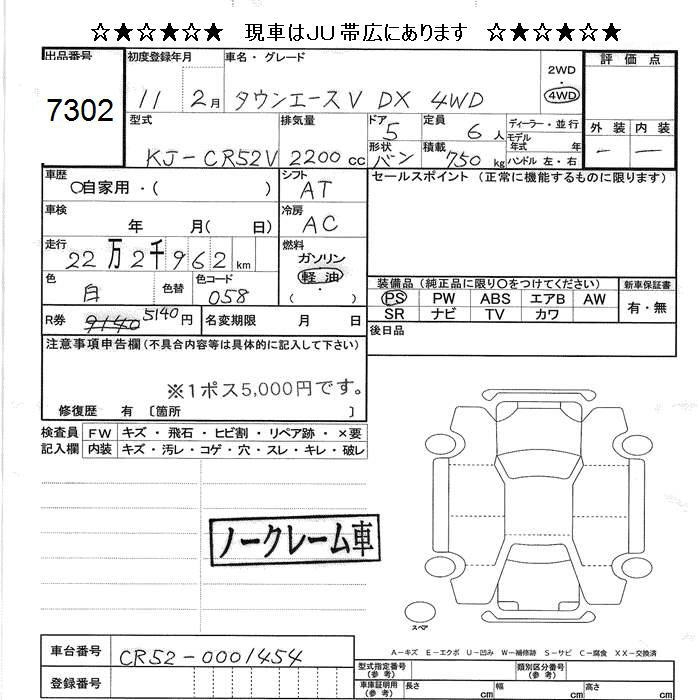 ☆★☆★☆★ 現車はJU帯広にあります ☆★☆★☆★
出品番号 初度登録年月 車名・グレード 評価点
7302 11 2月 タウンエースV DX 4WD 2WD 4WD
型式 排気量 ドア 定員 ディーラー・並行 外装 内装
5 6人 モデル年式 年
KJ-CR52V 2200cc 形状 バン 積載 750kg ハンドル 左・右 ー ー
車歴 シフト セールスポイント (正常に機能するものに限ります)
○自家用・( ) AT
車検 冷房
年 月( 日) AC
走行 燃料
22万2千962km ガソリン
色 色替 色コード 軽油
白 058 ( ・ )
装備品 (純正品に限り○をつけてください) 新車保証書
PS PW ABS エアB AW 有・無
SR ナビ TV カワ
R券 9140 5140円 名変期限 月 日 後日品
注意事項申告欄(不具合内容等は具体的に記入して下さい)
※1ポス5,000円です。
修復歴 有 〔箇所 〕
検査員 FW キズ・飛石・ヒビ割・リペア跡・×要
記入欄 内装 キズ・汚レ・コゲ・穴・スレ・キレ・破レ
ノークレーム車
スペア
A-キズ E-エクボ U-凹み W-補修跡 S-サビ C-腐食 XX-交換済
車台番号 CR52-0001454
登録番号
型式指定番号(参考) 類別区分番号(参考)
車庫証明用(参考) 長さ cm 幅 cm 高さ cm